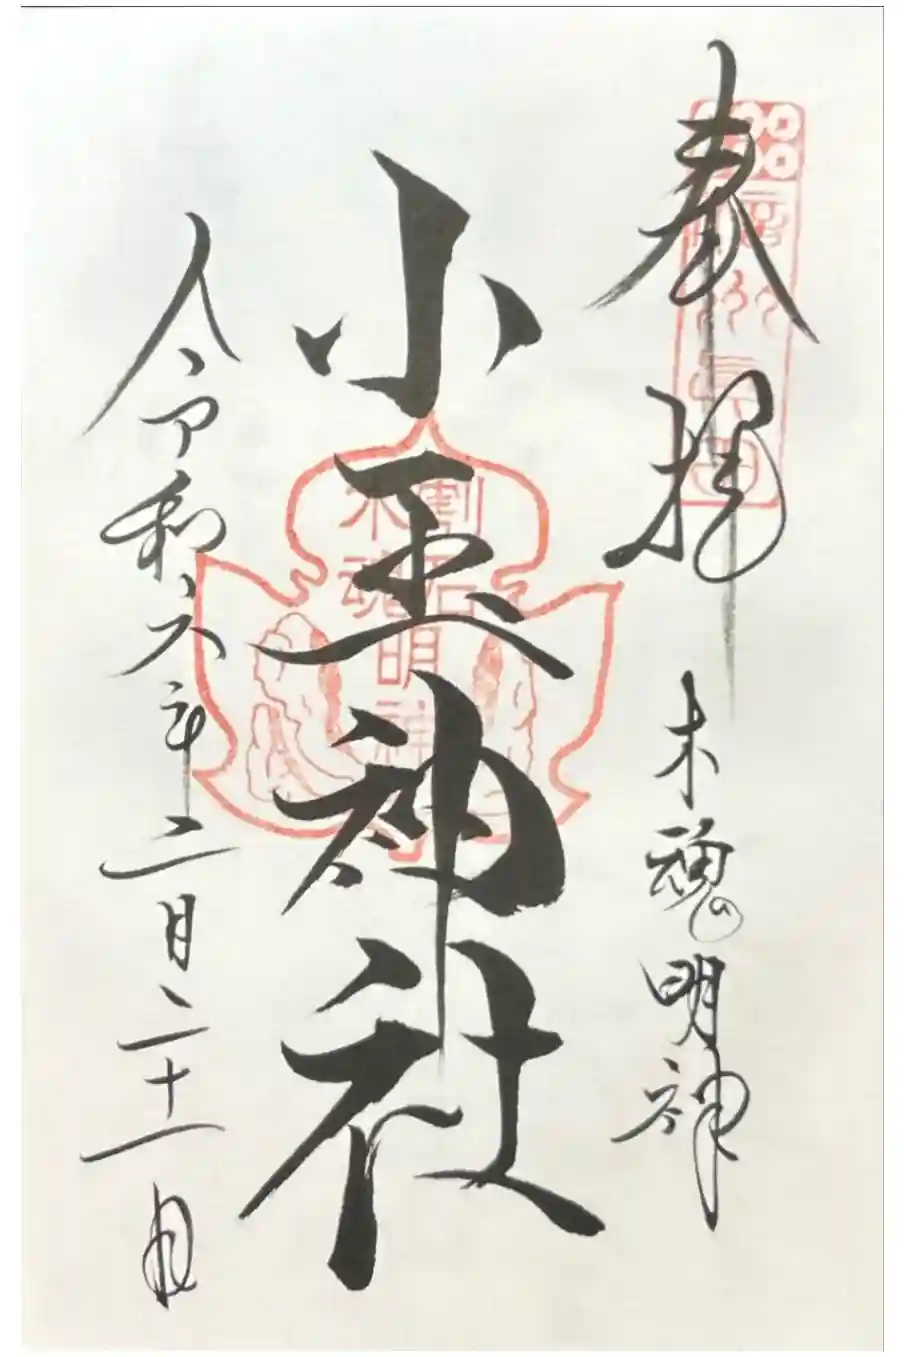 奉拝
木魂明神
小玉神社
令和六年二月二十一日
割石
木魂
明神